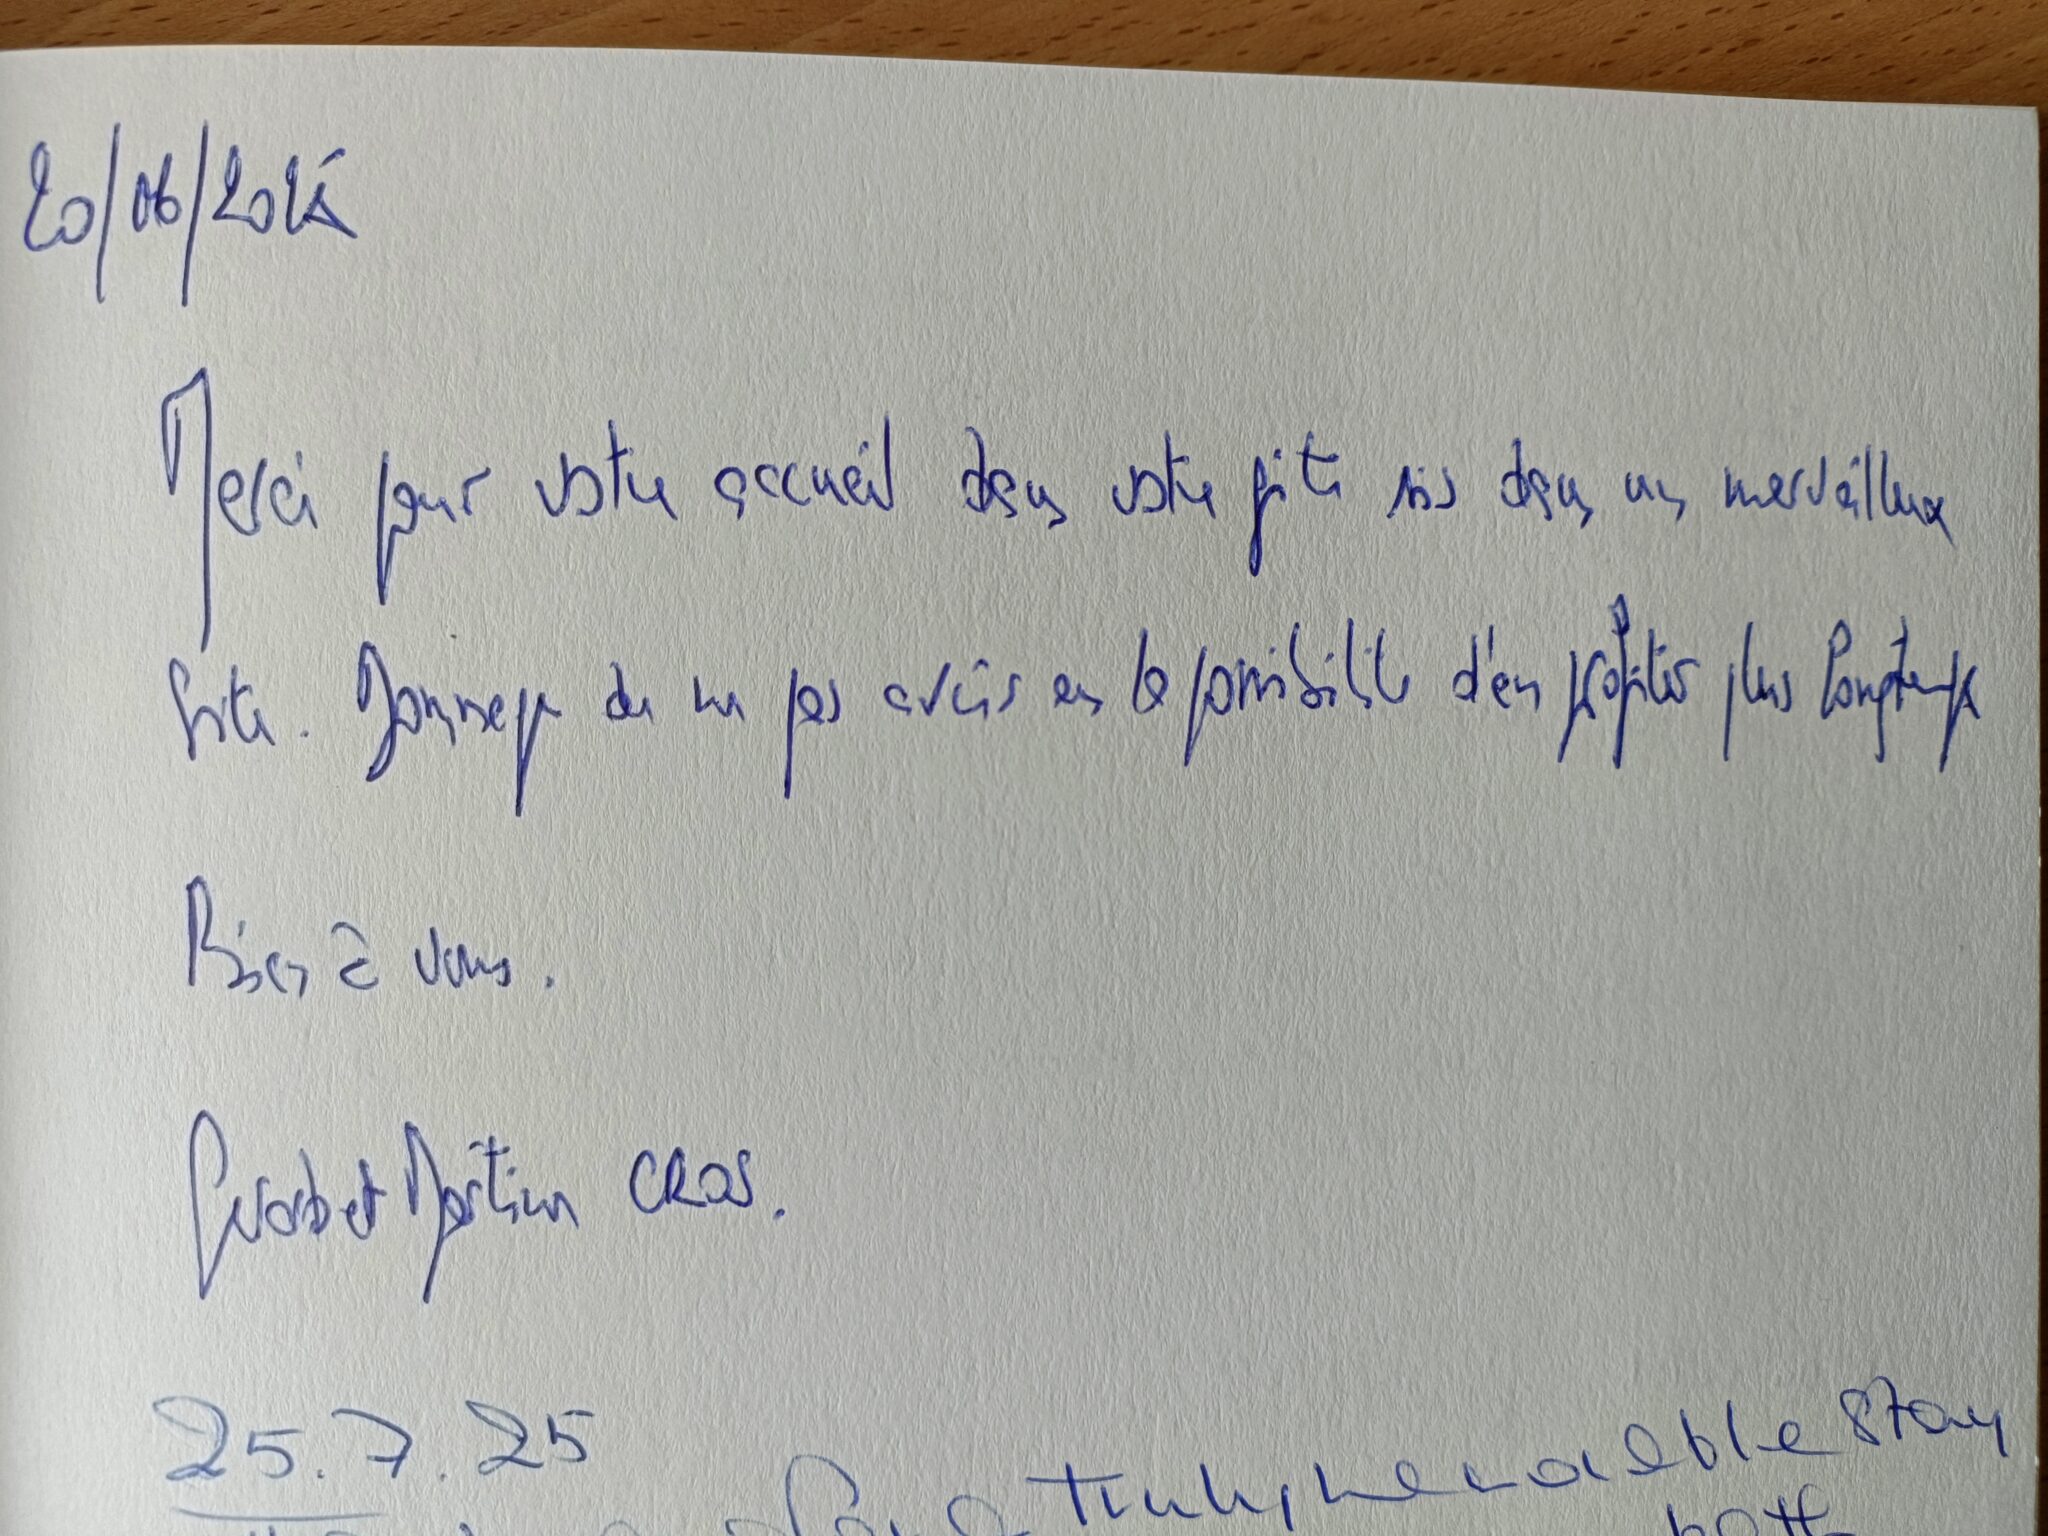 20/06/2025
Merci pour votre accueil dans votre gîte sis dans un merveilleux
site. Dommage de ne pas avoir eu la possibilité d'en profiter plus longtemps
Bien à vous.
et Martine CROS.
25.7.25
a Truly memorable stay